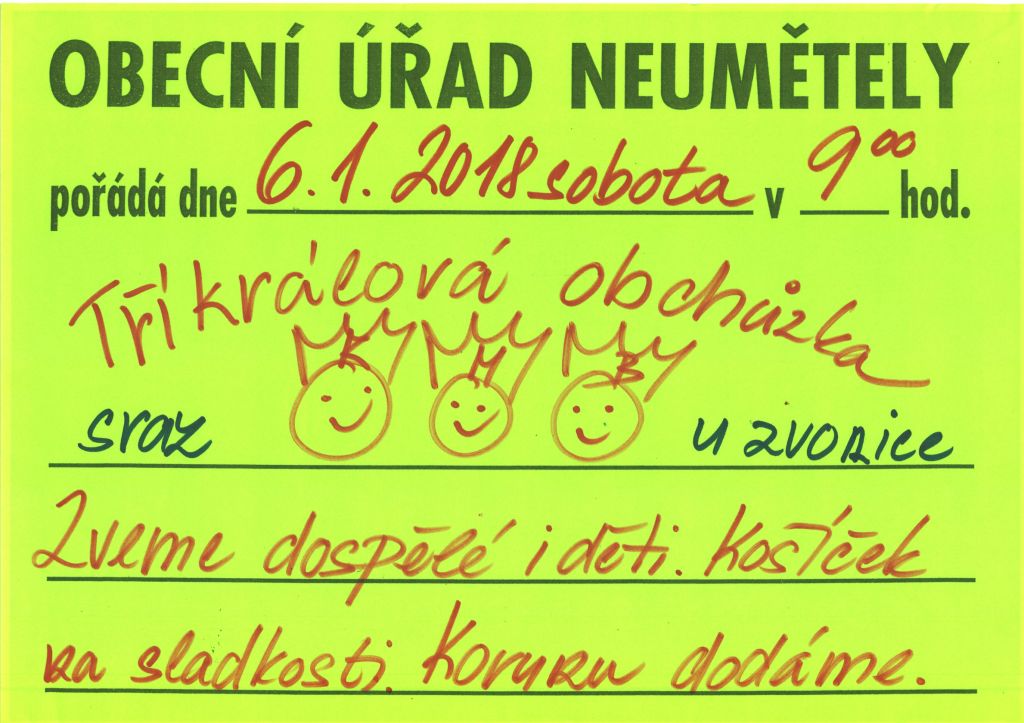 OBECNÍ ÚŘAD NEUMĚTELY
pořádá dne 6.1.2018 sobota v 9⁰⁰ hod.
Tříkrálová obchůzka
K M B
sraz u zvonice
Zveme dospělé i děti. Košíček
na sladkosti. Korunu dodáme.